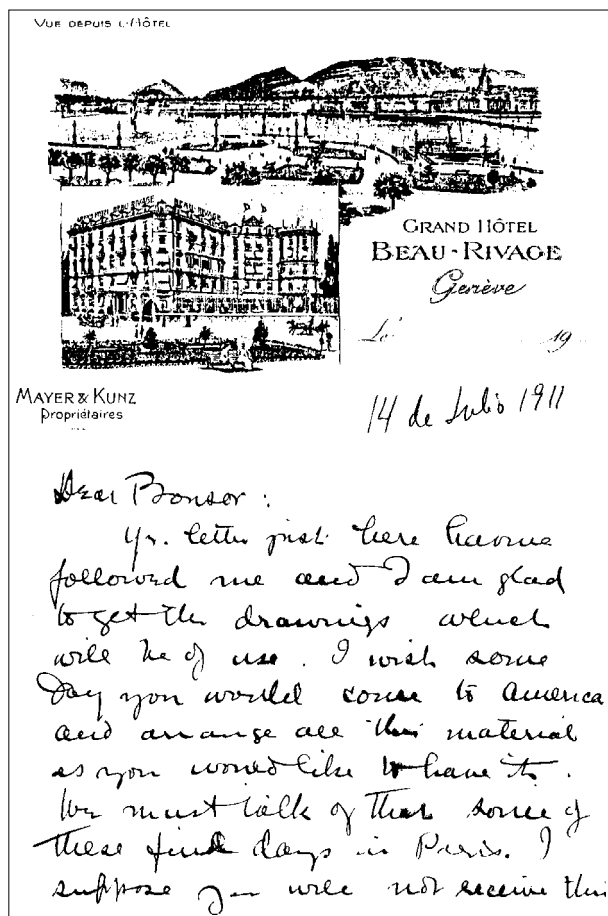 VUE DEPUIS L'HÔTEL
GRAND HÔTEL
BEAU-RIVAGE
Genève
Le 19
MAYER & KUNZ
Propriétaires
14 de Julio 1911
Dear Bonsor:
Yr. letter just here having
followed me and I am glad
to get the drawings which
will be of use. I wish some
day you would come to America
and arrange all this material
as you would like to have it.
We must talk of that some of
these fine days in Paris. I
suppose you will not receive this